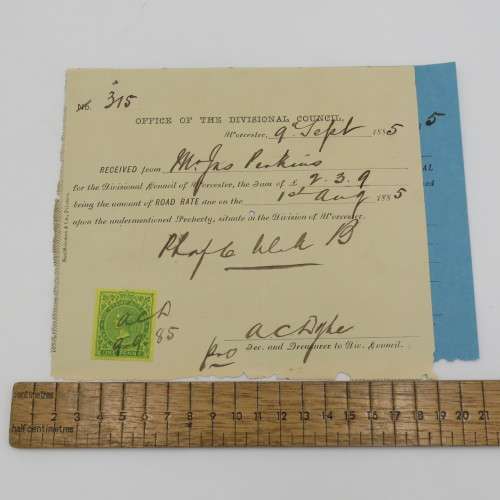 No. 315
OFFICE OF THE DIVISIONAL COUNCIL,
Worcester, 9 Sept 1885
RECEIVED from Mr Jas Perkins
for the Divisional Council of Worcester, the Sum of £ 2.3.9
being the amount of ROAD RATE due on the 1st Aug 1885
upon the undermentioned Property, situate in the Division of Worcester.
B
ACD
9.9.85
ONE PENNY
A C Dyke
pro Sec. and Treasurer to Div. Council.
5
centimetres
1 2 3 4 5 6 7 8 9 10 11 12 13 14 15 16 17 18 19 20 21
half centimetres